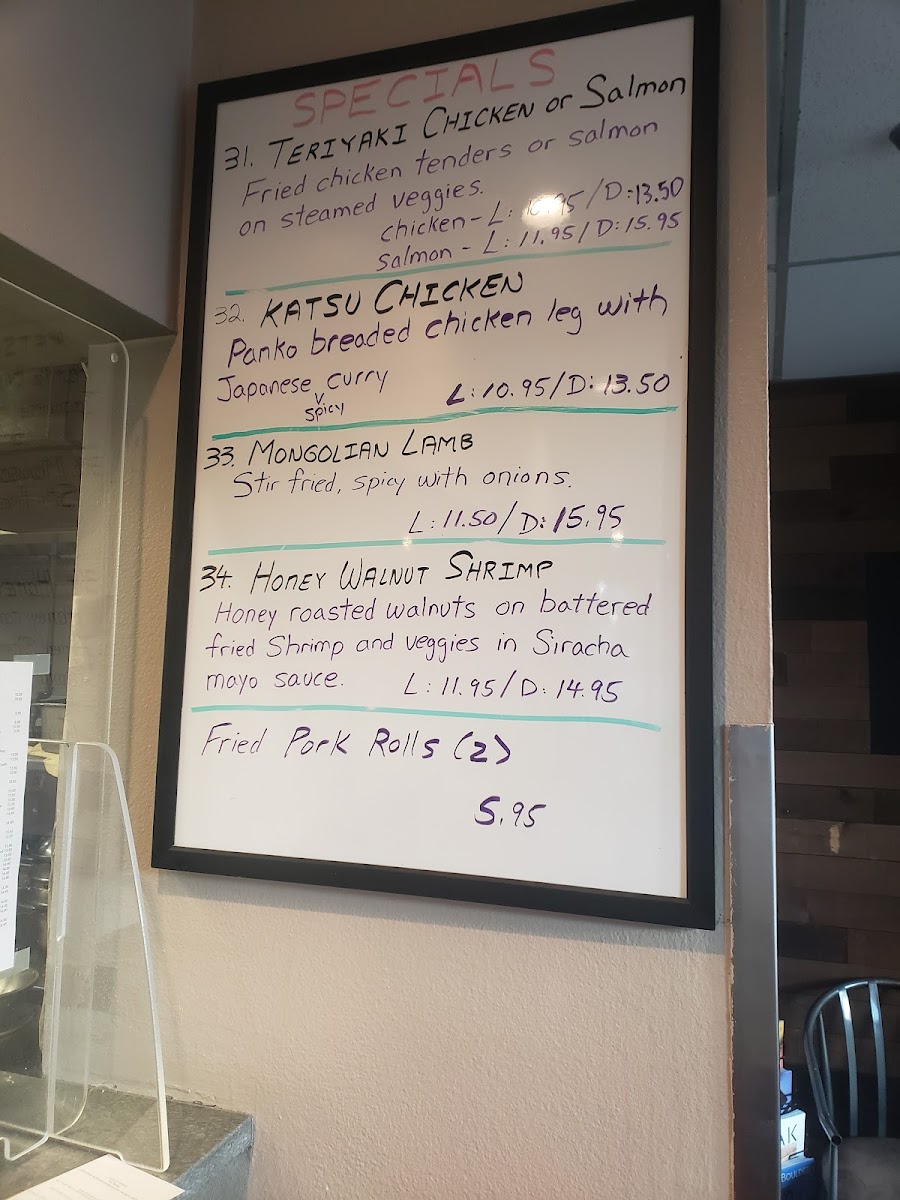 SPECIALS
31. TERIYAKI CHICKEN or Salmon
Fried chicken tenders or salmon
on steamed veggies.
chicken - L: 10.95 / D: 13.50
Salmon - L: 11.95 / D: 15.95
32. KATSU CHICKEN
Panko breaded chicken leg with
Japanese curry
v
spicy
L: 10.95 / D: 13.50
33. MONGOLIAN LAMB
Stir fried, spicy with onions.
L: 11.50 / D: 15.95
34. HONEY WALNUT SHRIMP
Honey roasted walnuts on battered
fried Shrimp and veggies in Siracha
mayo sauce. L: 11.95 / D: 14.95
Fried Pork Rolls (2)
5.95